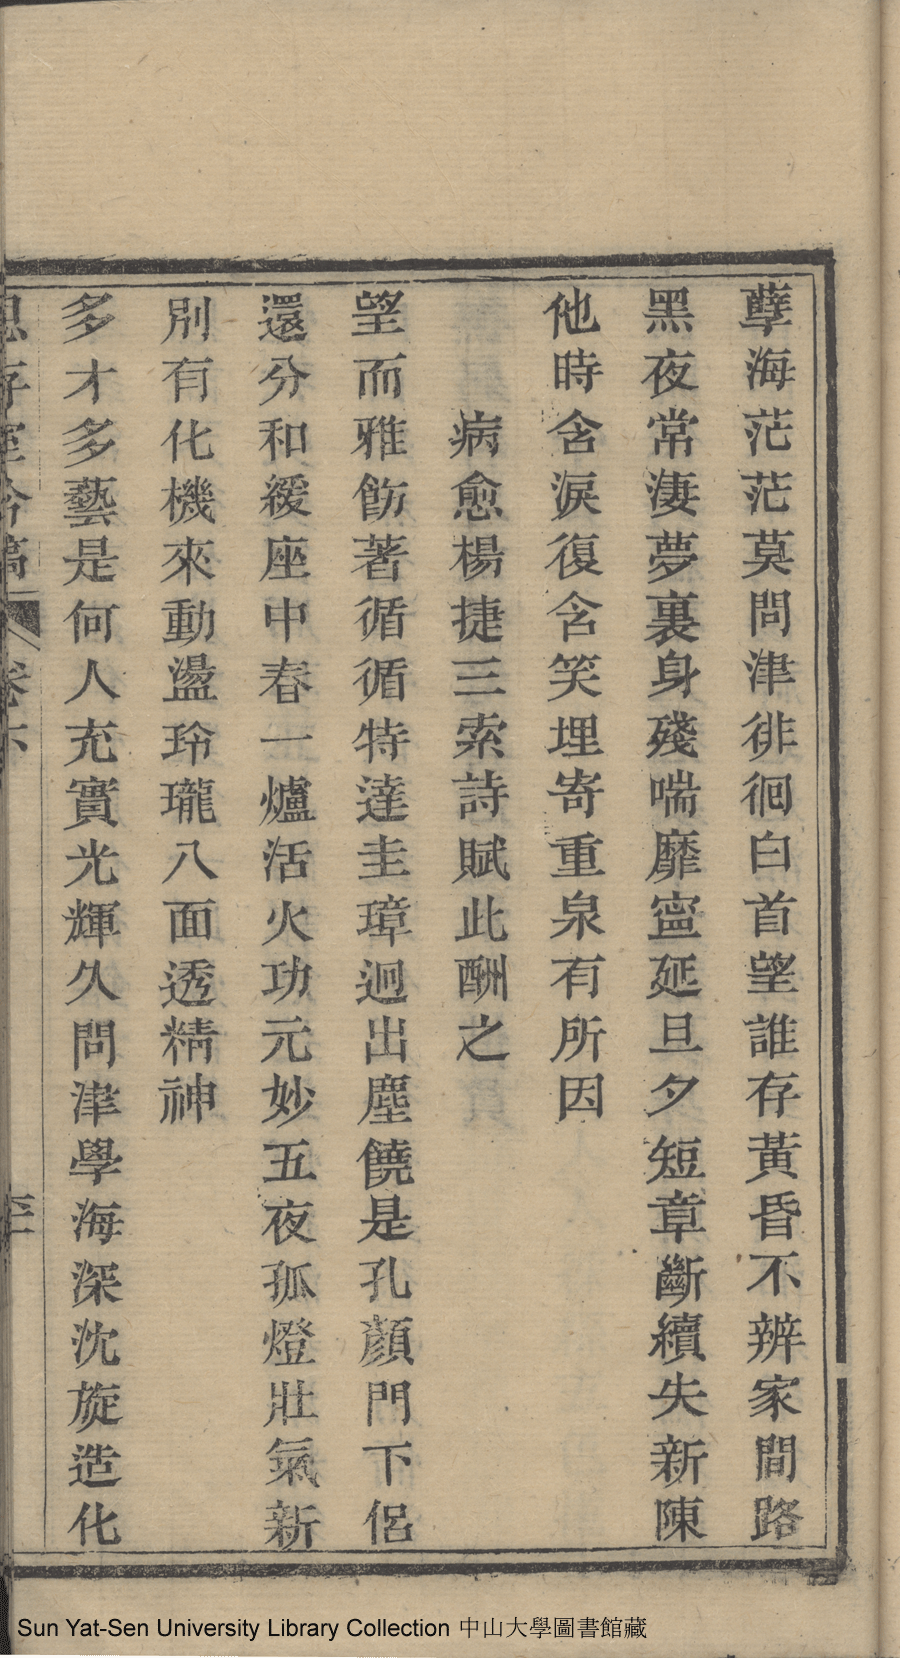 孽海茫茫莫問津徘徊白首望誰存黃昏不辨家間路
黑夜常淒夢裏身殘喘靡寍延旦夕短章斷續失新陳
他時含淚復含笑埋寄重泉有所因
病愈楊捷三索詩賦此酬之
望而雅飭著循循特達圭璋迥出塵饒是孔顏門下侶
還分和緩座中春一爐活火功元妙五夜孤燈壯氣新
別有化機來動盪玲瓏八面透精神
多才多藝是何人充實光輝久問津學海深沈旋造化
思存室吟稿 卷六
Sun Yat-Sen University Library Collection 中山大學圖書館藏